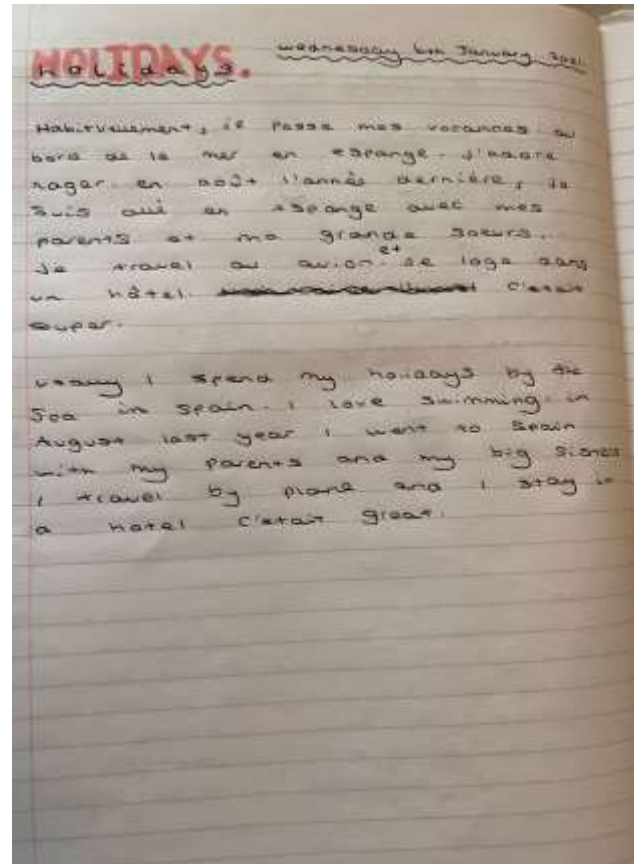 HOLIDAYS.
Holidays
Wednesday 6th January 2021.
Habituellement, je passe mes vacances au
bord de la mer en espange. J'adore
nager. en août l'année dernière, je
suis allé en espange avec mes
parents et ma grande soeurs.
Je travel au avion. et se loge dans
un hôtel. C'etait
super.
usually I spend my holidays by the
Sea in Spain. I love swimming. in
August last year I went to Spain
with my parents and my big sister
I travel by plane and I stay in
a hotel C'etait great.